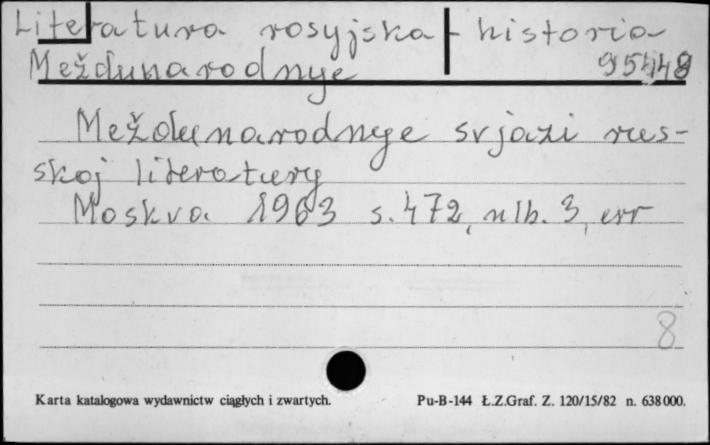 Literatura rosyjska - historia
Meždunarodnye 95448
Meždunarodnye svjazi rus-
skoj literatury
Moskva 1963 s. 472, nlb. 3, err
8
Karta katalogowa wydawnictw ciągłych i zwartych. Pu-B-144 Ł.Z.Graf. Z. 120/15/82 n. 638000.